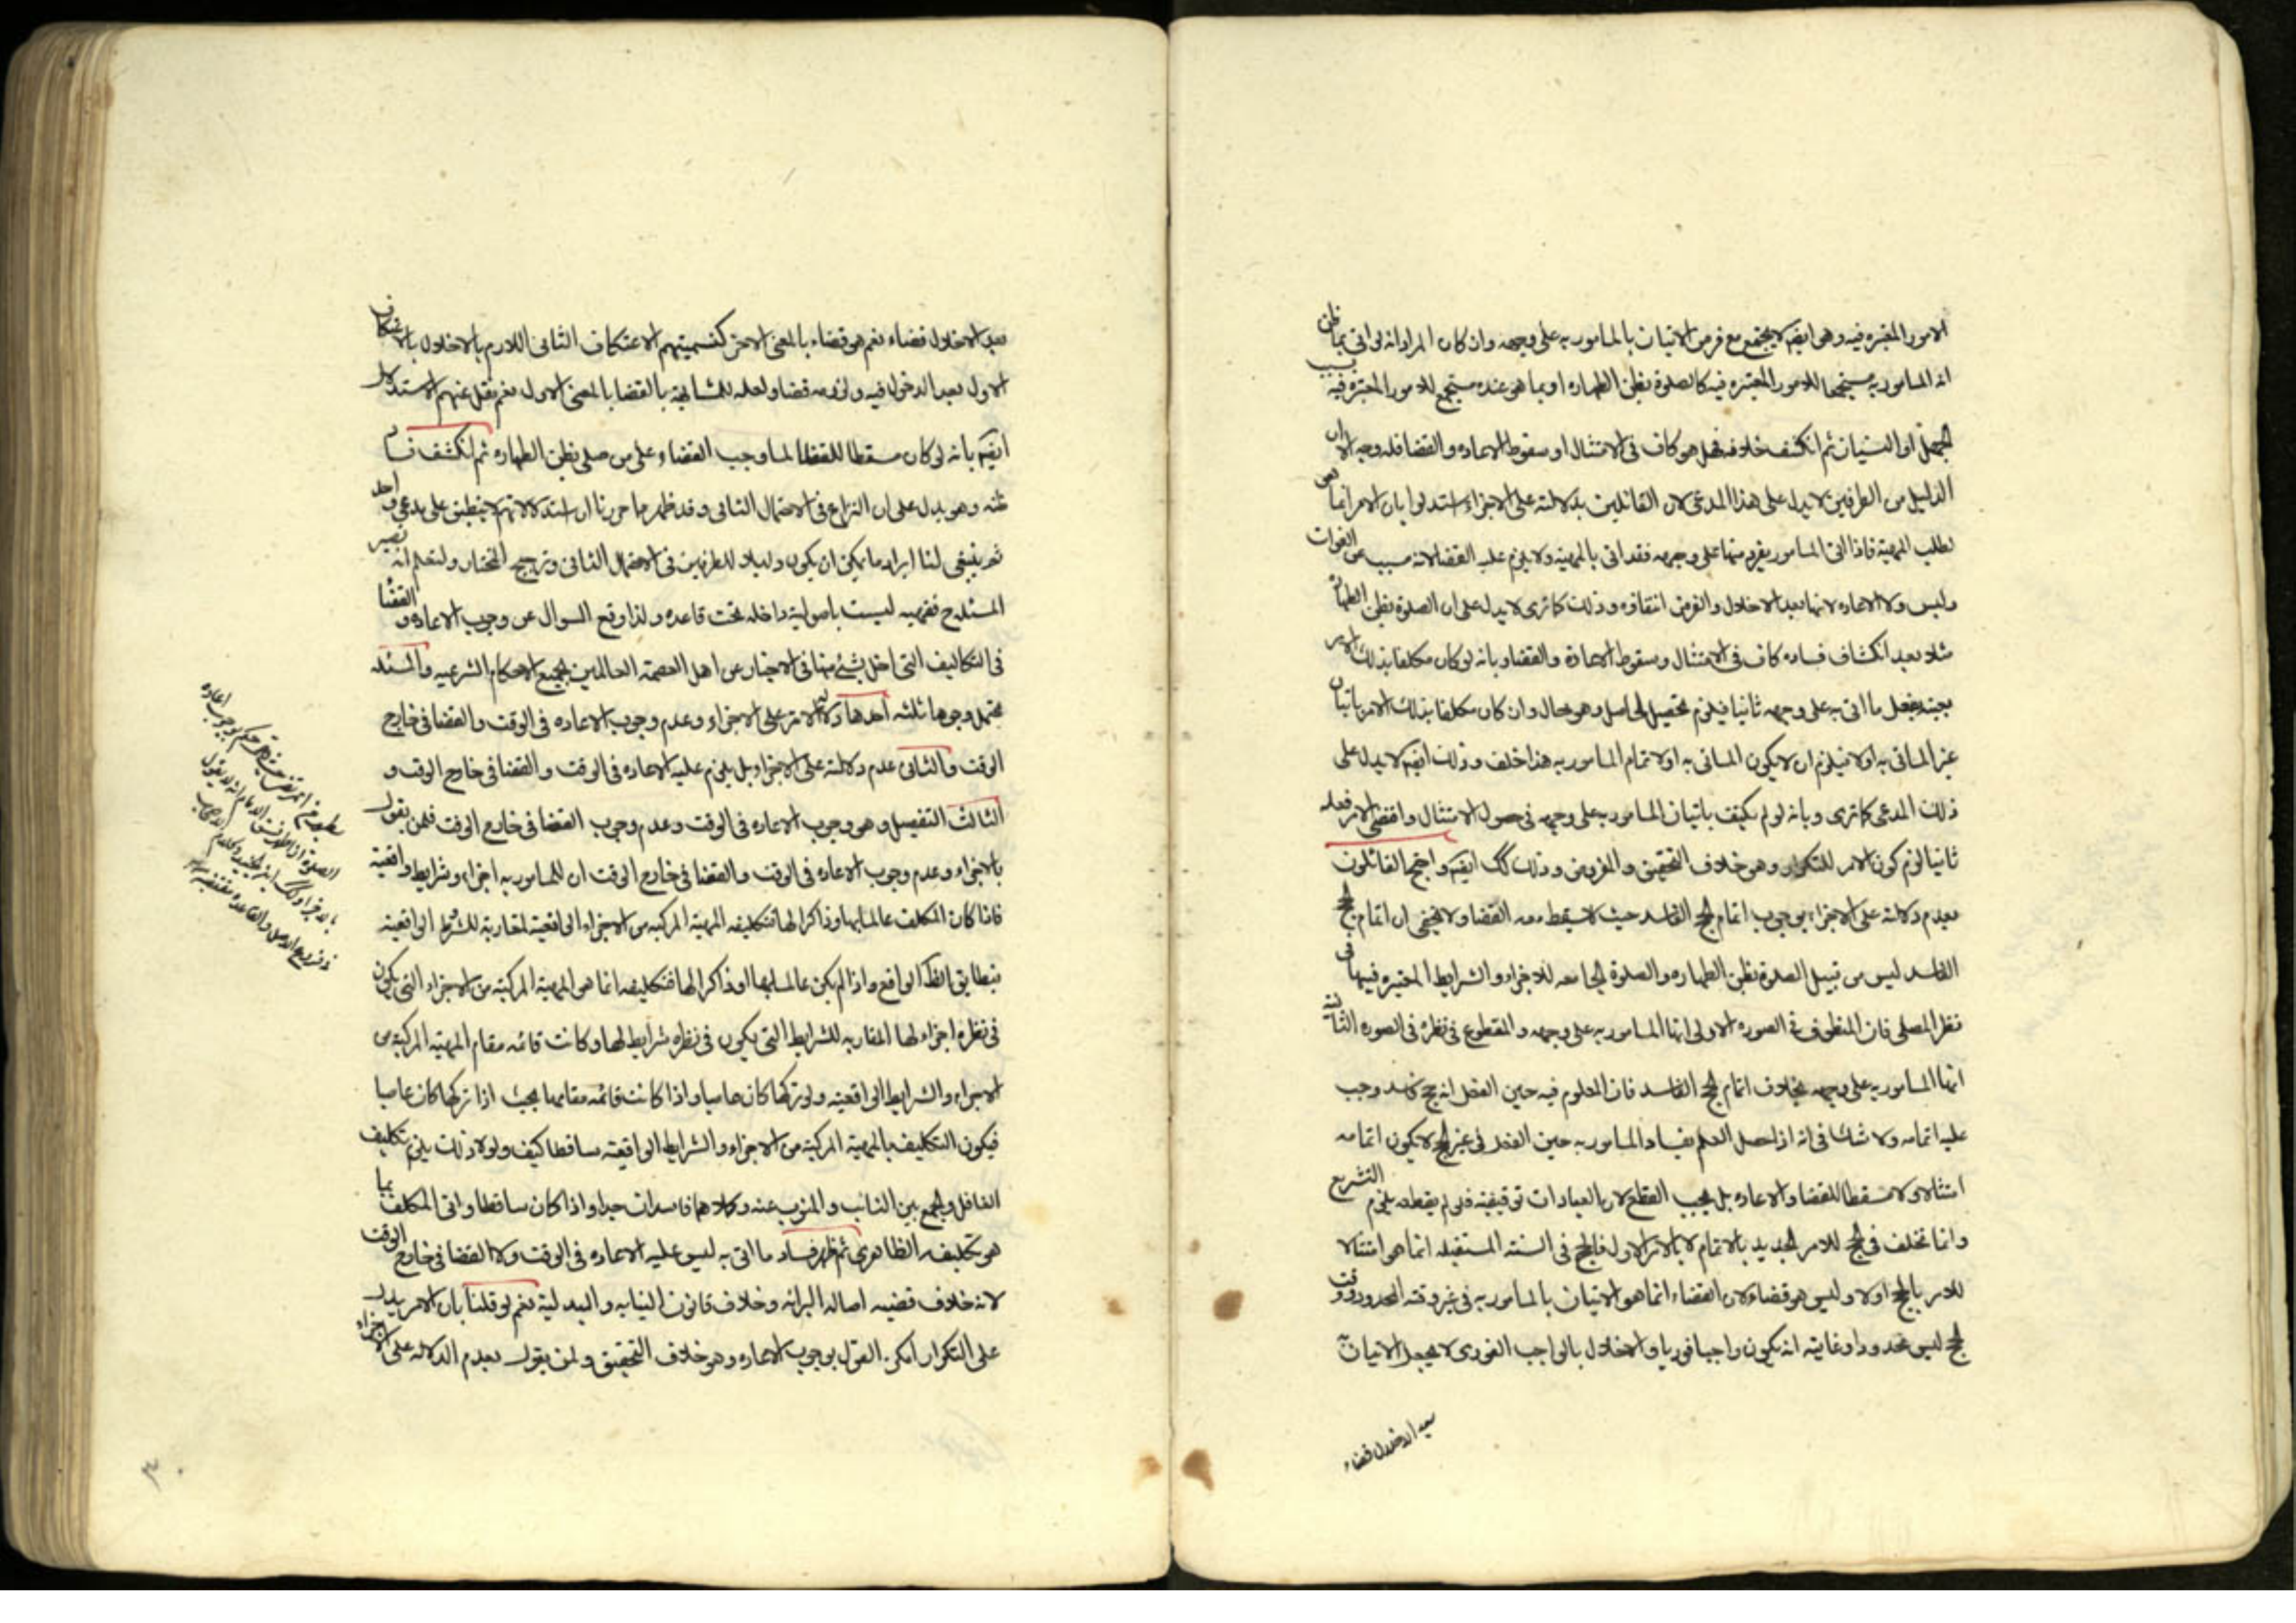 الامور المعتبره فيه وهو ايضا لا يجتمع مع فرض الاتيان بالمامور به على وجهه وان كان المراد انه لو اتى بما ظن
انه المامور به مستجمعا للامور المعتبره فيه كالصلوة بظن الطهاره او بما هو عنده مستجمع للامور المعتبره فيه بسبب
الجهل او النسيان ثم انكشف خلافه فهل هو كاف فى الامتثال او سقوط الاعاده والقضا فله وجه الا ان
الدليل من الطرفين لا يدل على هذا المدعى لان القائلين بدلالته على الاجزاء استدلوا بان الامر انما هو
لطلب المهية فاذا اتى المامور بفرد منها على وجهه فقد اتى بالمهية ولا يلزم عليه القضا لانه مسبب عن الفوات
وليس ولا الاعاده لانها بعد الاخلال والفرض انتفاؤه وذلك كما ترى لا يدل على ان الصلوة بظن الطهارة
مثلا بعد انكشاف فساده كاف فى الامتثال وسقوط الاعادة والقضاء وبانه لو كان مكلفا بذلك الامر
بعينه بفعل ما اتى به على وجهه ثانيا فيلزم تحصيل الحاصل وهو محال وان كان مكلفا بذلك الامر باتيان
غير الماتى به اولا فيلزم ان لا يكون الماتى به اولا تمام المامور به هذا خلف وذلك ايضا لا يدل على
ذلك المدعى كما ترى وبانه لو لم يكتف باتيان المامور به على وجهه فى حصول الامتثال واقتضى الامر فعله
ثانيا لزم كون الامر للتكرار وهو خلاف التحقيق والمفروض وذلك كك ايضا واحتج القائلون
بعدم دلالته على الاجزاء بوجوب اتمام الحج الفاسد حيث لا يسقط معه القضا ولا يخفى ان اتمام الحج
الفاسد ليس من قبيل الصلوة بظن الطهاره والصلوة الجامعه للاجزاء والشرايط المعتبره فيها فى
نظر المصلى فان المظنون فى الصوره الاولى انها المامور به على وجهه والمقطوع فى نظره فى الصوره الثانية
انها المامور به على وجهه بخلاف اتمام الحج الفاسد فان المعلوم فيه حين الفعل انه حج فاسد وجب
عليه اتمامه ولا شك فى انه اذا حصل العلم بفساد المامور به حين الفعل فى غير الحج لا يكون اتمامه
امتثالا ولا مسقطا للقضا والاعاده بل يجب القطع لان العبادات توقيفية فلو لم يقطعه يلزم التشريع
وانما تخلف فى الحج للامر الجديد بالاتمام لا بالامر الاول فالحج فى السنة المستقبله انما هو امتثالا
للامر بالحج اولا وليس هو قضاء لان القضاء انما هو الاتيان بالمامور به فى غير وقته المحدود ووقت
الحج ليس محدودا وغايته انه يكون واجبا فوريا والاخلال بالواجب الفورى لا يجعل الاتيان به
بعد الاخلال قضاء
بعد الاخلال قضاء نعم هو قضاء بالمعنى الاخر كتسميتهم الاعتكاف الثانى اللازم بالاخلال بالاعتكاف
الاول بعد الدخول فيه ولزومه قضا ولعله للمشابهة بالقضا بالمعنى الاول نعم نقل عنهم الاستدلال
ايضا بانه لو كان مسقطا للقضا لما وجب القضاء على من صلى بظن الطهاره ثم انكشف فساد
ظنه وهو يدل على ان النزاع فى الاحتمال الثانى وقد ظهر مما حررنا ان استدلالاتهم لا ينطبق على مدعى واحد
نعم ينبغى لنا ايراد ما يمكن ان يكون دليلا للطرفين فى الاحتمال الثانى وترجيح المختار ولتعلم انه تصير
المسئله ح فقهيه ليست باصولية داخله تحت قاعده ولذا وقع السوال عن وجوب الاعاده والقضا
فى التكاليف التى اخل بشئ منها فى الاخبار عن اهل العصمة العالمين بجميع الاحكام الشرعيه والمسئله
يحتمل وجوها ثلثه احدها دلالة الامر على الاجزاء وعدم وجوب الاعاده فى الوقت والقضا فى خارج
الوقت والثانى عدم دلالته على الاجزاء بل يلزم عليه الاعاده فى الوقت والقضا فى خارج الوقت و
الثالث التفصيل وهو وجوب الاعاده فى الوقت وعدم وجوب القضا فى خارج الوقت فلمن يقول
بالاجزاء وعدم وجوب الاعاده فى الوقت والقضا فى خارج الوقت ان للمامور به اجزاء وشرايط واقعية
فاذا كان المكلف عالما بها وذاكرا لها فتكليفه المهية المركبه من الاجزاء الواقعية المقارنة للشرايط الواقعية
بتطابق لظ الواقع واذا لم يكن عالما بها او ذاكرا لها فتكليفه انما هو المهية المركبة من الاجزاء التى يكون
فى نظره اجزاء لها المقارنه للشرايط التى يكون فى نظره شرايط لها وكانت قائمه مقام المهية المركبة من
الاجزاء والشرايط الواقعيه ولو تركها كان عاصيا واذا كانت قائمه مقامها بحيث اذا تركها كان عاصيا
فيكون التكليف بالمهية المركبة من الاجزاء والشرايط الواقعية ساقطا كيف ولولا ذلك يلزم تكليف
الغافل والجمع بين النائب والمنوب عنه وكلاهما فاسدان جدا واذا كان ساقطا واتى المكلف بما
هو تكليفه الظاهرى ثم ظهر فساد ما اتى به ليس عليه الاعاده فى الوقت ولا القضا فى خارج الوقت
لانه خلاف قضيه اصالة البرائه وخلاف قانون النيابه والبدلية نعم لو قلنا بان الامر يدل
على التكرار امكن القول بوجوب الاعاده وهو خلاف التحقيق ولمن يقول بعدم الدلاله على الاجزاء
٣٠